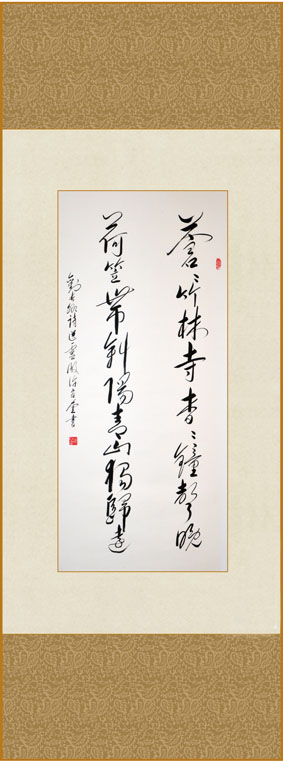 蒼〻竹林寺杳〻鐘聲晚
荷笠帶斜陽青山獨歸遠
劉長卿詩送靈澈